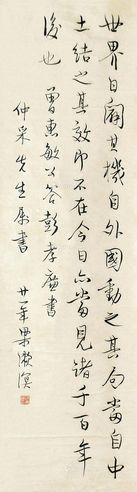 世界日闢其機自外國動之其局當自中
土結之其效即不在今日亦當見諸千百年
後也 曾惠敏公答彭孝廉書
仲采先生屬書
廿一年梁漱溟